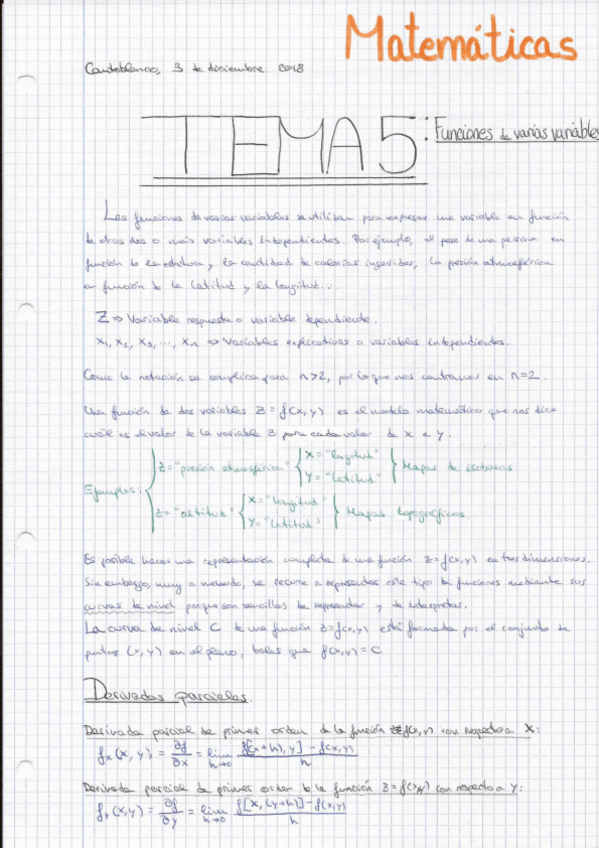 Matemáticas
Cantoblanco, 3 de diciembre 2018
TEMA 5: Funciones de varias variables
Las funciones de varias variables se utilizan para expresar una variable en función
de otras dos o más variables independientes. Por ejemplo, el peso de una persona en
función de la estatura y la cantidad de calorías ingeridas, la presión atmosférica
en función de la latitud y la longitud...
Z ⇒ Variable respuesta o variable dependiente.
x₁, x₂, x₃, ..., xₙ ⇒ Variables explicativas o variables independientes.
Como la notación se complica para n>2, por lo que nos centramos en n=2.
Una función de dos variables z = f(x,y) es el modelo matemático que nos dice
cuál es el valor de la variable z para cada valor de x e y.
Ejemplos:
z = "presión atmosférica" { x = "longitud" y = "latitud" } Mapas de isobaras
z = "altitud" { x = "longitud" y = "latitud" } Mapas topográficos.
Es posible hacer una representación completa de una función z=f(x,y) en tres dimensiones.
Sin embargo, muy a menudo, se recurre a representar este tipo de funciones mediante sus
curvas de nivel porque son sencillas de representar y de interpretar.
La curva de nivel C de una función z=f(x,y) está formada por el conjunto de
puntos (x,y) en el plano, tales que f(x,y)=C
Derivadas parciales.
Derivada parcial de primer orden de la función z=f(x,y) con respecto a X:
fₓ(x,y) = ∂f/∂x = lim h→0 f[(x+h),y] - f(x,y) / h
Derivada parcial de primer orden de la función z=f(x,y) con respecto a Y:
fᵧ(x,y) = ∂f/∂y = lim h→0 f[x,(y+h)] - f(x,y) / h